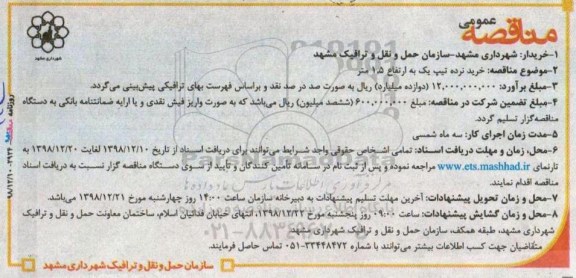 مناقصه عمومی
شهرداری مشهد
۱-خریدار: شهرداری مشهد-سازمان حمل و نقل و ترافیک مشهد
۲-موضوع مناقصه: خرید نرده تیپ یک به ارتفاع ۱,۵ متر
۳-مبلغ برآورد: ۱۲,۰۰۰,۰۰۰,۰۰۰ (دوازده میلیارد) ریال به صورت صد در صد نقد و براساس فهرست بهای ترافیکی پیش‌بینی می‌گردد.
۴-مبلغ تضمین شرکت در مناقصه: مبلغ ۶۰۰,۰۰۰,۰۰۰ (ششصد میلیون) ریال می‌باشد که به صورت واریز فیش نقدی و یا ارایه ضمانتنامه بانکی به دستگاه
مناقصه‌گزار تسلیم گردد.
۵-مدت زمان اجرای کار: سه ماه شمسی
۶-محل، زمان و مهلت دریافت اسناد: تمامی اشخاص حقوقی واجد شرایط می‌توانند برای دریافت اسناد از تاریخ ۱۳۹۸/۱۲/۱۰ لغایت ۱۳۹۸/۱۲/۲۰ به
تارنمای www.ets.mashhad.ir مراجعه نموده و پس از ثبت نام در سامانه تامین کنندگان و تایید از سوی دستگاه مناقصه گزار نسبت به دریافت اسناد
مناقصه اقدام نمایند.
۷-محل و زمان تحویل پیشنهادات: آخرین مهلت تسلیم پیشنهادات به دبیرخانه سازمان ساعت ۱۴:۰۰ روز چهارشنبه مورخ ۱۳۹۸/۱۲/۲۱ می‌باشد.
۸-محل و زمان گشایش پیشنهادات: ساعت ۰۹:۰۰ روز پنجشنبه مورخ ۱۳۹۸/۱۲/۲۲، انتهای خیابان فدائیان اسلام، ساختمان معاونت حمل و نقل و ترافیک
شهرداری مشهد، طبقه همکف، سازمان حمل و نقل و ترافیک شهرداری مشهد
متقاضیان جهت کسب اطلاعات بیشتر می‌توانند با شماره ۳۳۴۴۸۴۷۲-۰۵۱ تماس حاصل فرمایند.
سازمان حمل و نقل و ترافیک شهرداری مشهد